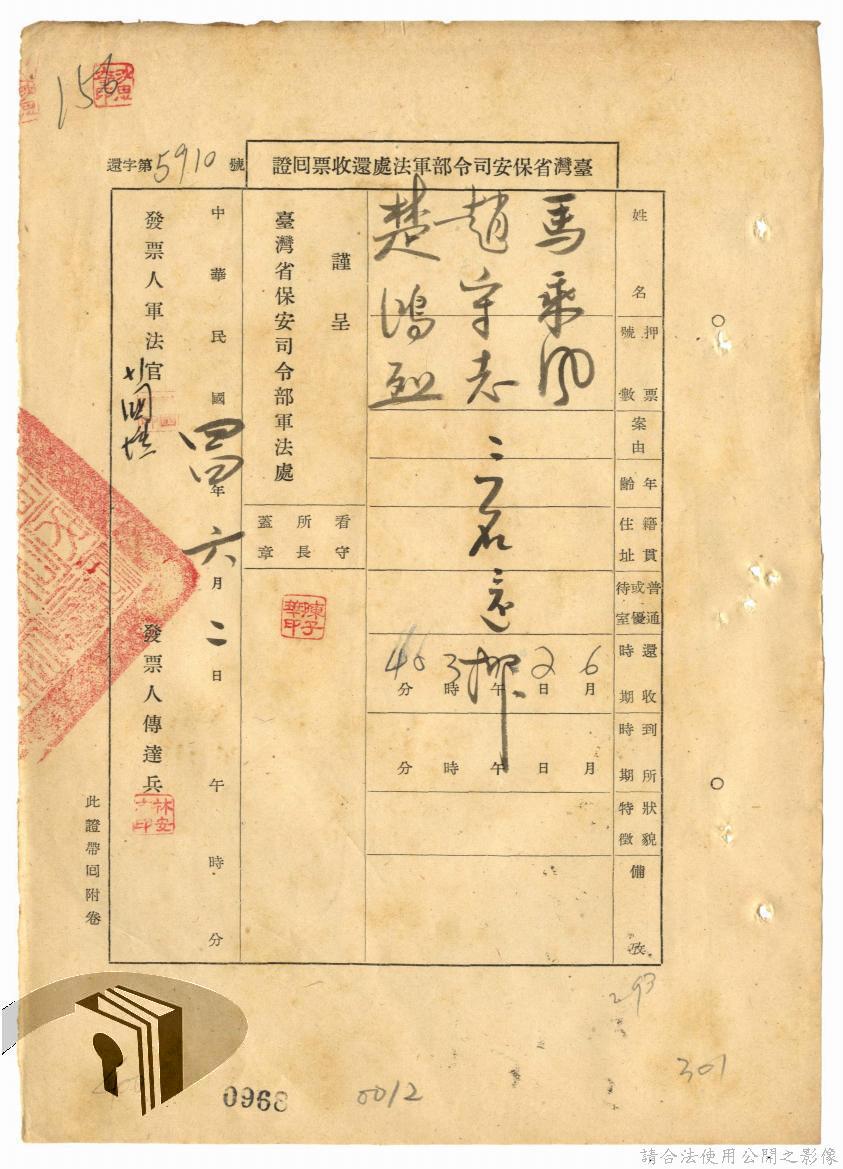 156
臺灣省保安司令部軍法處還收票回證
還字第5910號
姓名
馬乘風
趙守志
楚鴻烈
押票號數
案由
年齡
籍貫住址
普通或優待室
還收時期
6月2日午3時45分
到所時期
月日午時分
狀貌特徵
備攷
三名還押
謹呈
臺灣省保安司令部軍法處
看守所所長蓋章
陳子華印
中華民國四四年六月二日午時分
發票人軍法官
發票人傳達兵
此證帶回附卷
293
301
0968
0012
請合法使用公開之影像